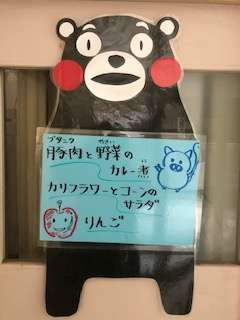 ブタニク やさい
豚肉と野菜の
に
カレー煮
カリフラワーとコーンの
サラダ
りんご